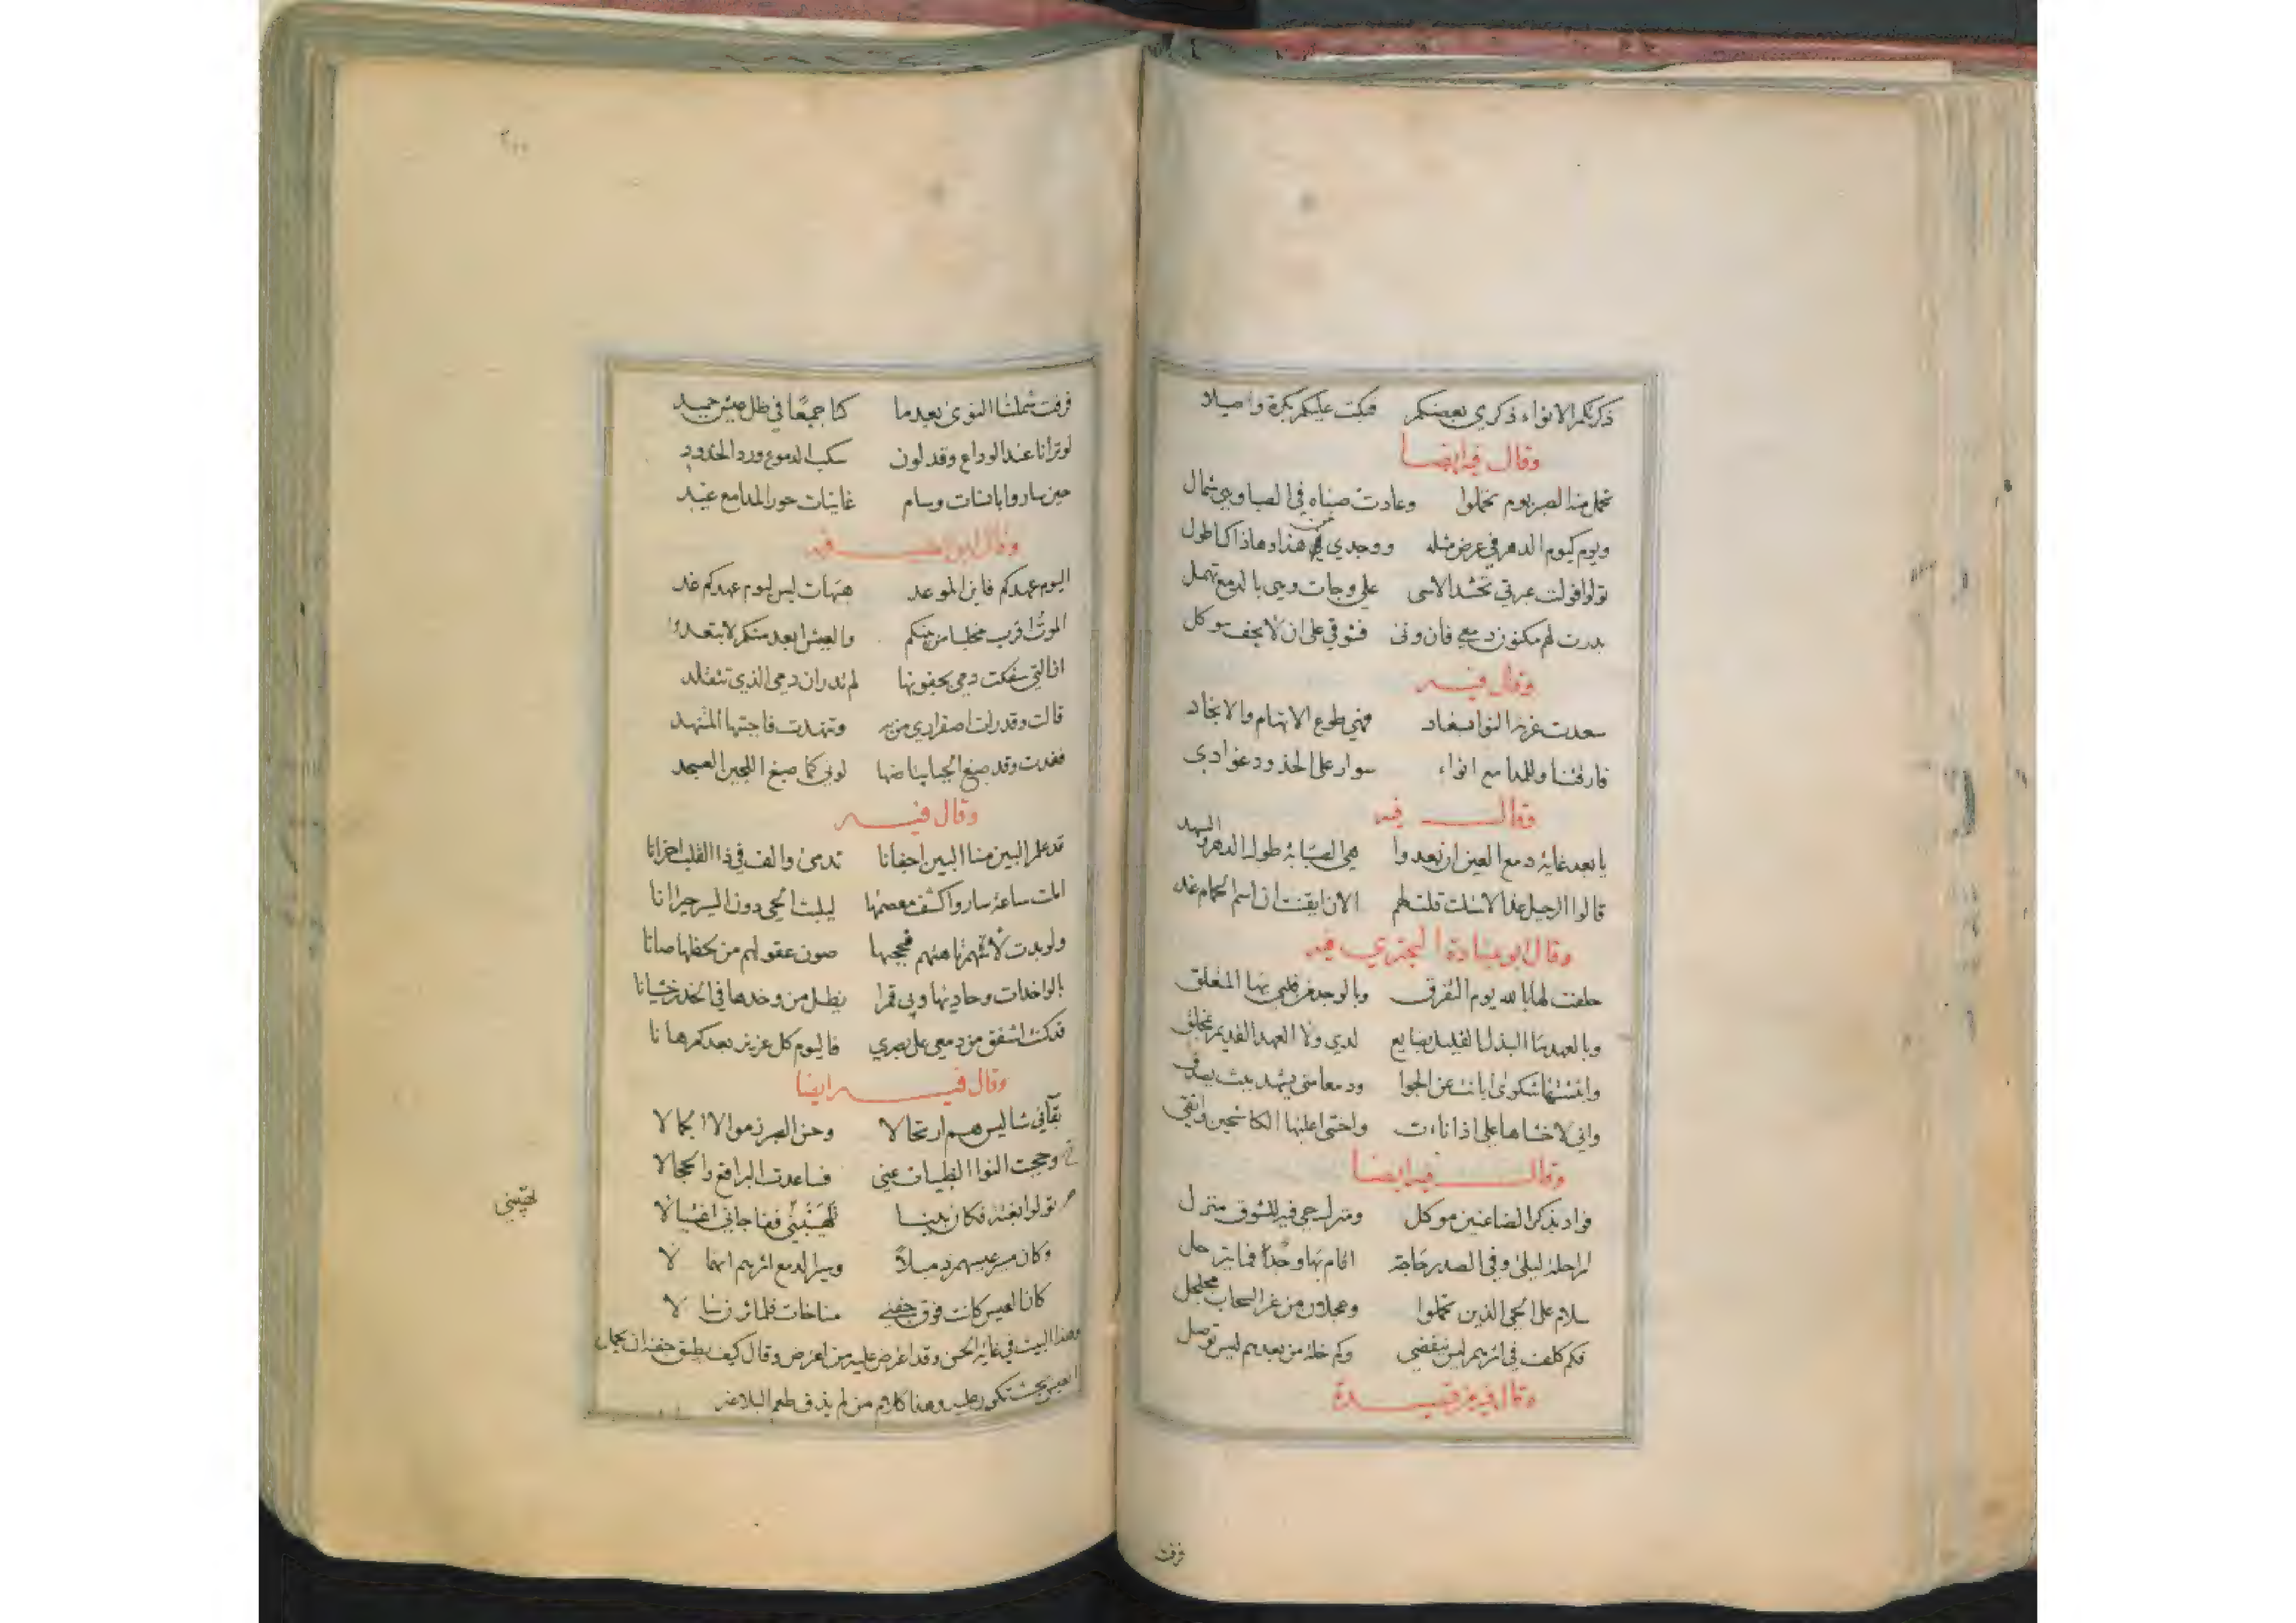 ذكرتكم الانواء ذكري بعضكم فبكت عليكم بكرة واصيلا
وقال فيه ايضا
تحمل عنه الصبر يوم تحملوا وعادت صباه في الصبا وهي شمال
ويوم كيوم الدهر في عرض مثله ووجدي من هذا وهاذاك اطول
تولوا فولت عبرتي تحشد الاسى على وجنات وهي بالدمع تهمل
بدرت لهم مكنون دمعي فان ونى فشوقي على ان لا يجف موكل
وقال فيه
سعدت غربة النوا بسعاد فهي طوع الاتهام والانجاد
فارقتنا وللمدامع انواء سوار على الخدود غوادي
وقال فيه
يا بعد غاية دمع العين ان بعدوا هي الصبابة طول الدهر والسهد
قالوا الرحيل غدا لا شك قلت لهم الان ايقنت ان اسم الحمام غد
وقال ابو عبادة البحتري فيه
حلفت لها بالله يوم التفرق وبالوجد من قلبي بها المتعلق
وبالعهد ما البذل القليل بضايع لدي ولا العهد القديم بمخلق
وابثثتها شكوى ابانت عن الجوا ودمعا متى يشهد ببث يصدق
واني لاخشاها علي اذا ناءت واخشى عليها الكاشحين واتقي
وقال فيه ايضا
فواد بذكر الضاعنين موكل ومنزل حي فيه للشوق منزل
اراحلة ليلى وفي الصدر حاجة اقام بها وجدا فما يترحل
سلام على الحي الذين تحملوا وعجلان من غر السحاب مجلجل
فكم كلف في اثرهم ليس ينقضي وكم خلة من بعدهم ليس توصل
وقال فيه من قصيدة
فرقت
٢٠٠
فرقت شملنا النوى بعد ما كنا جميعًا في ظل عيش حميد
لو ترانا عند الوداع وقد لون سكب الدموع ورد الخدود
حين ساروا بانسات وسام غانيات حور المدامع غيد
وقال ابو الطيب فيه
اليوم عهدكم فاين الموعد هيهات ليس ليوم عهدكم غد
الموت اقرب مخلبا من بينكم والعيش ابعد منكم لا تبعدوا
ان التي سفكت دمي بجفونها لم تدر ان دمي الذي تتقلد
قالت وقد رات اصفراري من به وتنهدت فاجبتها المتنهد
فغدت وقد صبغ الحيا بياضها لوني كما صبغ اللجين العسجد
وقال فيه
قد علم البين منا البين اجفانا تدمى والف في ذا القلب احزانا
املت ساعة ساروا كشف معصمها ليلبث الحي دون السير حيرانا
ولو بدت لاتاهتهم فحجبها صون عقولهم من لحظها صانا
بالواخدات وحاديها وبي قمر يظل من وخدها في الخدر خشيانا
قد كنت اشفق من دمعي على بصري فاليوم كل عزيز بعدكم هانا
وقال فيه ايضا
بقآئي شا ليس هم ارتحالا وحسن الصبر زموا لا الجمالا
وحجبت النوا الظبيات عني فساعدت البراقع والحجالا
تولوا بغتة فكان بينا تهيبني ففاجاني اغتيالا
وكان مسير عيسهم ذميلاً وسير الدمع اثرهم انهمالا
كان العيس كانت فوق جفني مناخات فلما ثرن سالا
وهذا البيت في غاية الحسن وقد اعترض عليه من اعترض وقال كيف يطيق جفنه ان يحمل
العيس عليه وهذا كلام من لم يذق طعم البلاغة
تهيبني